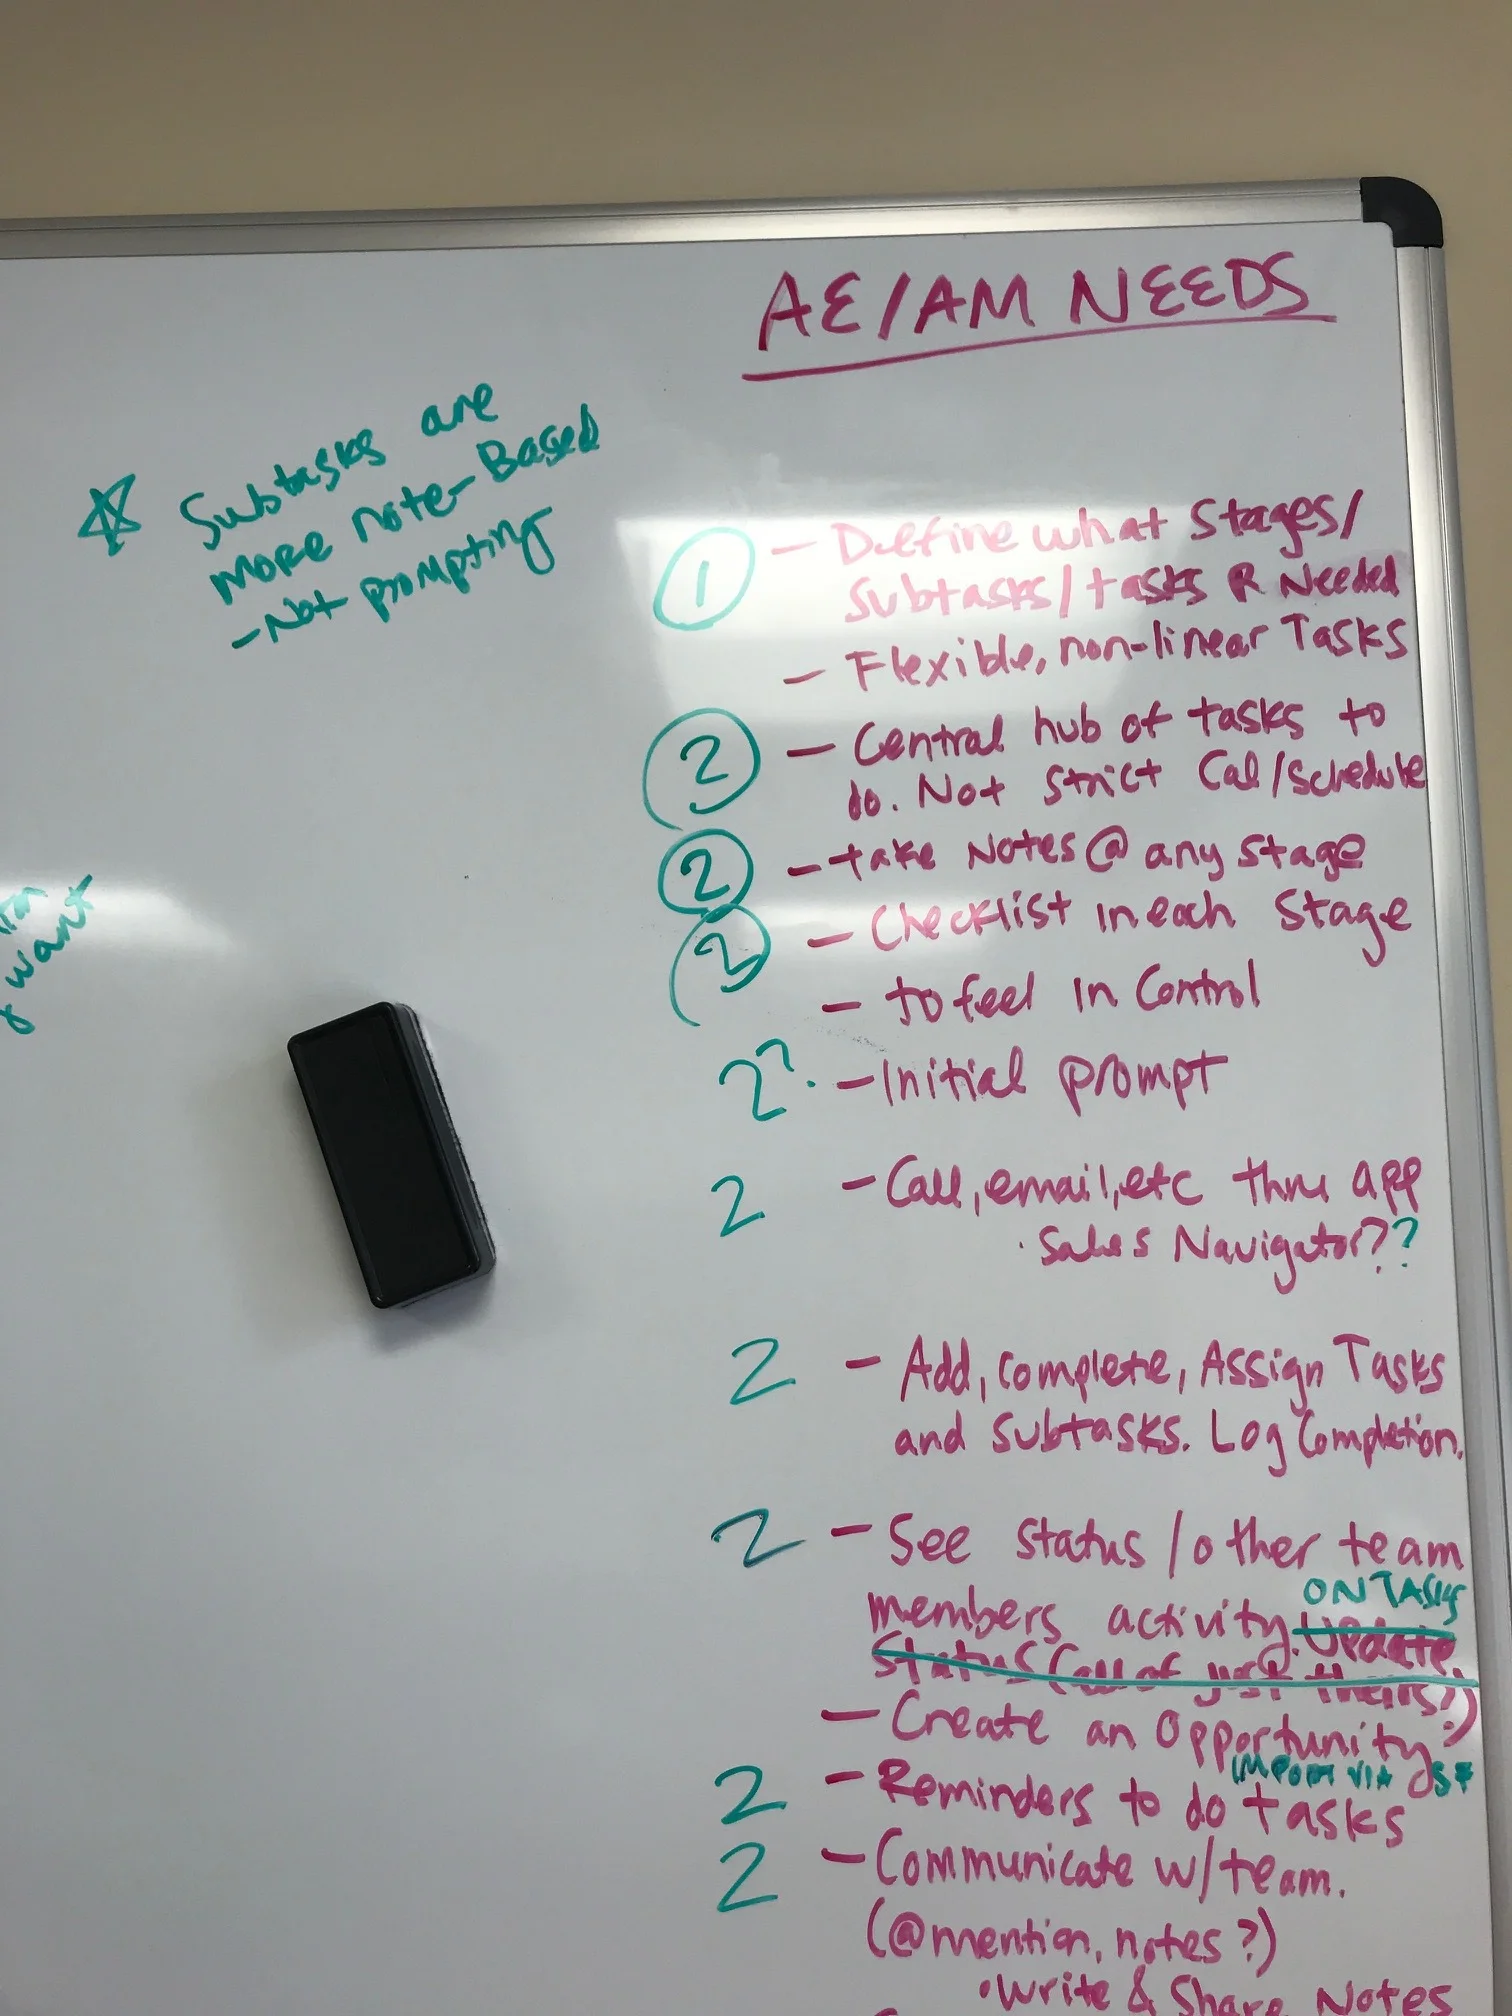 AE/AM NEEDS
☆ Subtasks are
more note-Based
- Not prompting
want
1 - Define what Stages/
Subtasks/tasks R Needed
- Flexible, non-linear Tasks
2 - Central hub of tasks to
do. Not strict Cal/Schedule
2 - take Notes @ any stage
2 - Checklist in each Stage
- to feel in Control
2? - Initial prompt
2 - Call, email, etc thru app
· Sales Navigator??
2 - Add, complete, Assign Tasks
and subtasks. Log Completion.
2 - See status/other team
ON TASKS
members activity. Update
Status (all of just theirs?)
- Create an Opportunity
IMPORT VIA SF
2 - Reminders to do tasks
2 - Communicate w/team.
(@mention, notes?)
• Write & Share Notes